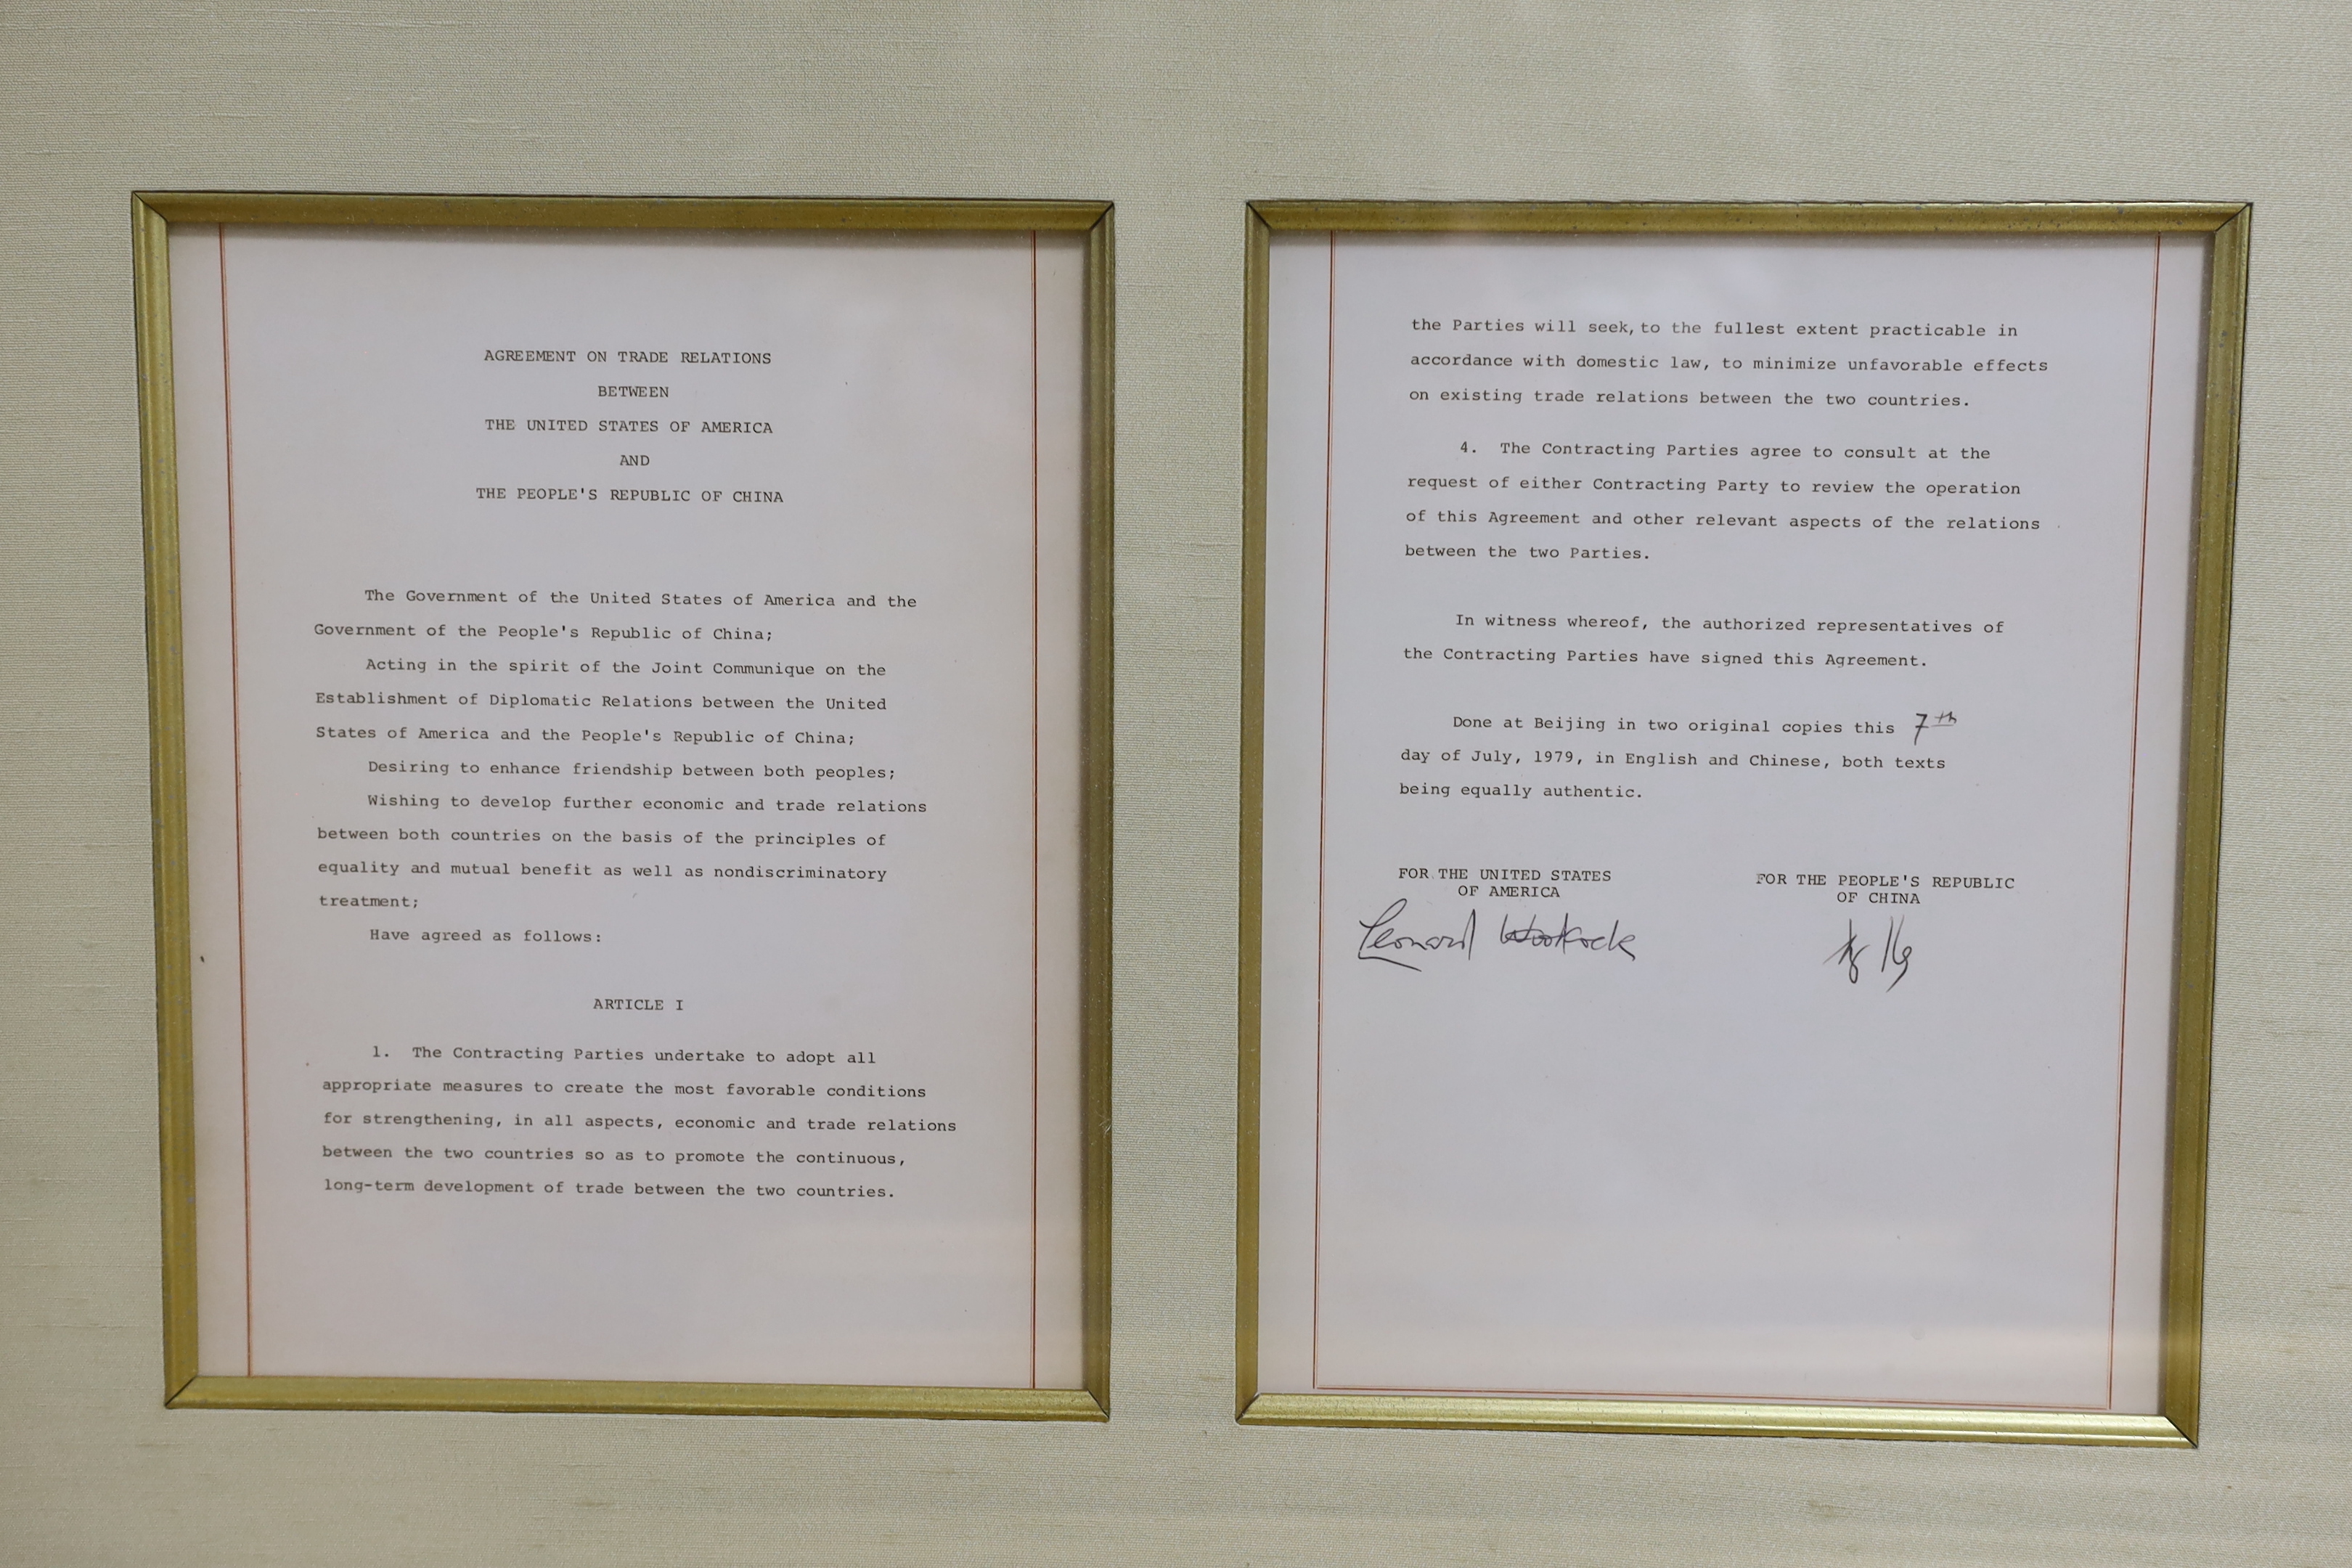 AGREEMENT ON TRADE RELATIONS
BETWEEN
THE UNITED STATES OF AMERICA
AND
THE PEOPLE'S REPUBLIC OF CHINA
The Government of the United States of America and the
Government of the People's Republic of China;
Acting in the spirit of the Joint Communique on the
Establishment of Diplomatic Relations between the United
States of America and the People's Republic of China;
Desiring to enhance friendship between both peoples;
Wishing to develop further economic and trade relations
between both countries on the basis of the principles of
equality and mutual benefit as well as nondiscriminatory
treatment;
Have agreed as follows:
ARTICLE I
1. The Contracting Parties undertake to adopt all
appropriate measures to create the most favorable conditions
for strengthening, in all aspects, economic and trade relations
between the two countries so as to promote the continuous,
long-term development of trade between the two countries.
the Parties will seek, to the fullest extent practicable in
accordance with domestic law, to minimize unfavorable effects
on existing trade relations between the two countries.
4. The Contracting Parties agree to consult at the
request of either Contracting Party to review the operation
of this Agreement and other relevant aspects of the relations
between the two Parties.
In witness whereof, the authorized representatives of
the Contracting Parties have signed this Agreement.
Done at Beijing in two original copies this 7th
day of July, 1979, in English and Chinese, both texts
being equally authentic.
FOR THE UNITED STATES
OF AMERICA
Leonard Woodcock
FOR THE PEOPLE'S REPUBLIC
OF CHINA